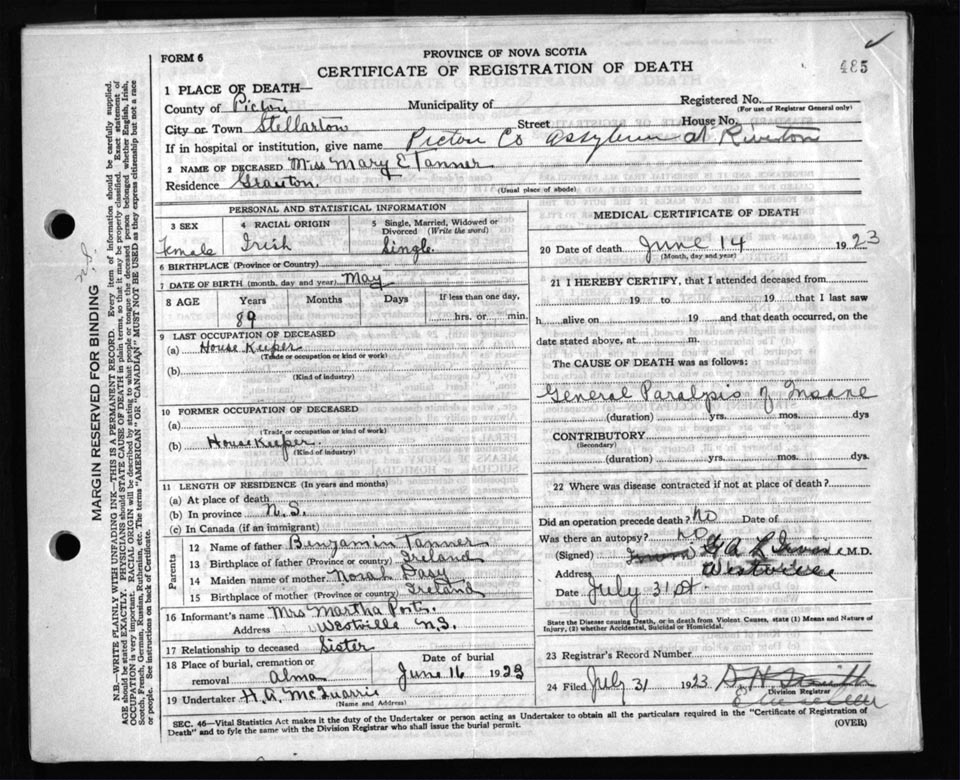 485
FORM 6
PROVINCE OF NOVA SCOTIA
CERTIFICATE OF REGISTRATION OF DEATH
1 PLACE OF DEATH—
County of Pictou Municipality of Registered No.
(For use of Registrar General only)
City or Town Stellarton Street House No.
If in hospital or institution, give name Pictou Co Assylum at Riverton
2 NAME OF DECEASED Miss Mary E Tanner
Residence
(Usual place of abode)
PERSONAL AND STATISTICAL INFORMATION
3 SEX 4 RACIAL ORIGIN 5 Single, Married, Widowed or Divorced (Write the word)
Female Irish Single
6 BIRTHPLACE (Province or Country)
7 DATE OF BIRTH (month, day and year) May
8 AGE Years Months Days If less than one day,
89 hrs. or min.
9 LAST OCCUPATION OF DECEASED
(a) House Keeper
(Trade or occupation or kind or work)
(b)
(Kind of industry)
10 FORMER OCCUPATION OF DECEASED
(a)
(Trade or occupation or kind of work)
(b) House Keeper
(Kind of industry)
11 LENGTH OF RESIDENCE (In years and months)
(a) At place of death
(b) In province N.S.
(c) In Canada (if an immigrant)
Parents
12 Name of father Benjamin Tanner
13 Birthplace of father (Province or country) Ireland
14 Maiden name of mother Norah
15 Birthplace of mother (Province or country) Ireland
16 Informant's name Mrs Martha
Address Westville N.S.
17 Relationship to deceased Sister
18 Place of burial, cremation or removal Alma
Date of burial June 16 1923
19 Undertaker H. A. McQuarrie
(Name and Address)
MEDICAL CERTIFICATE OF DEATH
20 Date of death June 14 1923
(Month, day and year)
21 I HEREBY CERTIFY, that I attended deceased from
19 to 19 that I last saw
h alive on 19 and that death occurred, on the
date stated above, at m.
The CAUSE OF DEATH was as follows:
General Paralysis of Insane
(duration) yrs. mos. dys
CONTRIBUTORY
(Secondary)
(duration) yrs. mos. dys
22 Where was disease contracted if not at place of death?
Did an operation precede death? no Date of
Was there an autopsy? no
(Signed) M.D.
Address Westville
Date July 31st
State the Disease causing Death, or in death from Violent Causes, state (1) Means and Nature of
Injury, (2) whether Accidental, Suicidal or Homicidal.
23 Registrar's Record Number
24 Filed July 31 1923
Division Registrar
SEC. 46—Vital Statistics Act makes it the duty of the Undertaker or person acting as Undertaker to obtain all the particulars required in the "Certificate of Registration of
Death" and to fyle the same with the Division Registrar who shall issue the burial permit. (OVER)
MARGIN RESERVED FOR BINDING
N.B.—WRITE PLAINLY WITH UNFADING INK—THIS IS A PERMANENT RECORD. Every item of information should be carefully supplied.
AGE should be stated EXACTLY. PHYSICIANS should STATE CAUSE OF DEATH in plain terms, so that it may be properly classified. Exact statement of
OCCUPATION is very important. RACIAL ORIGIN will be described by stating to what people or tongue the deceased person belonged whether English, Irish,
Scotch, French, German, Russian, Ruthenian, etc. The terms "AMERICAN" OR "CANADIAN" MUST NOT BE USED as they express citizenship but not a race
or people. See instructions on back of Certificate.